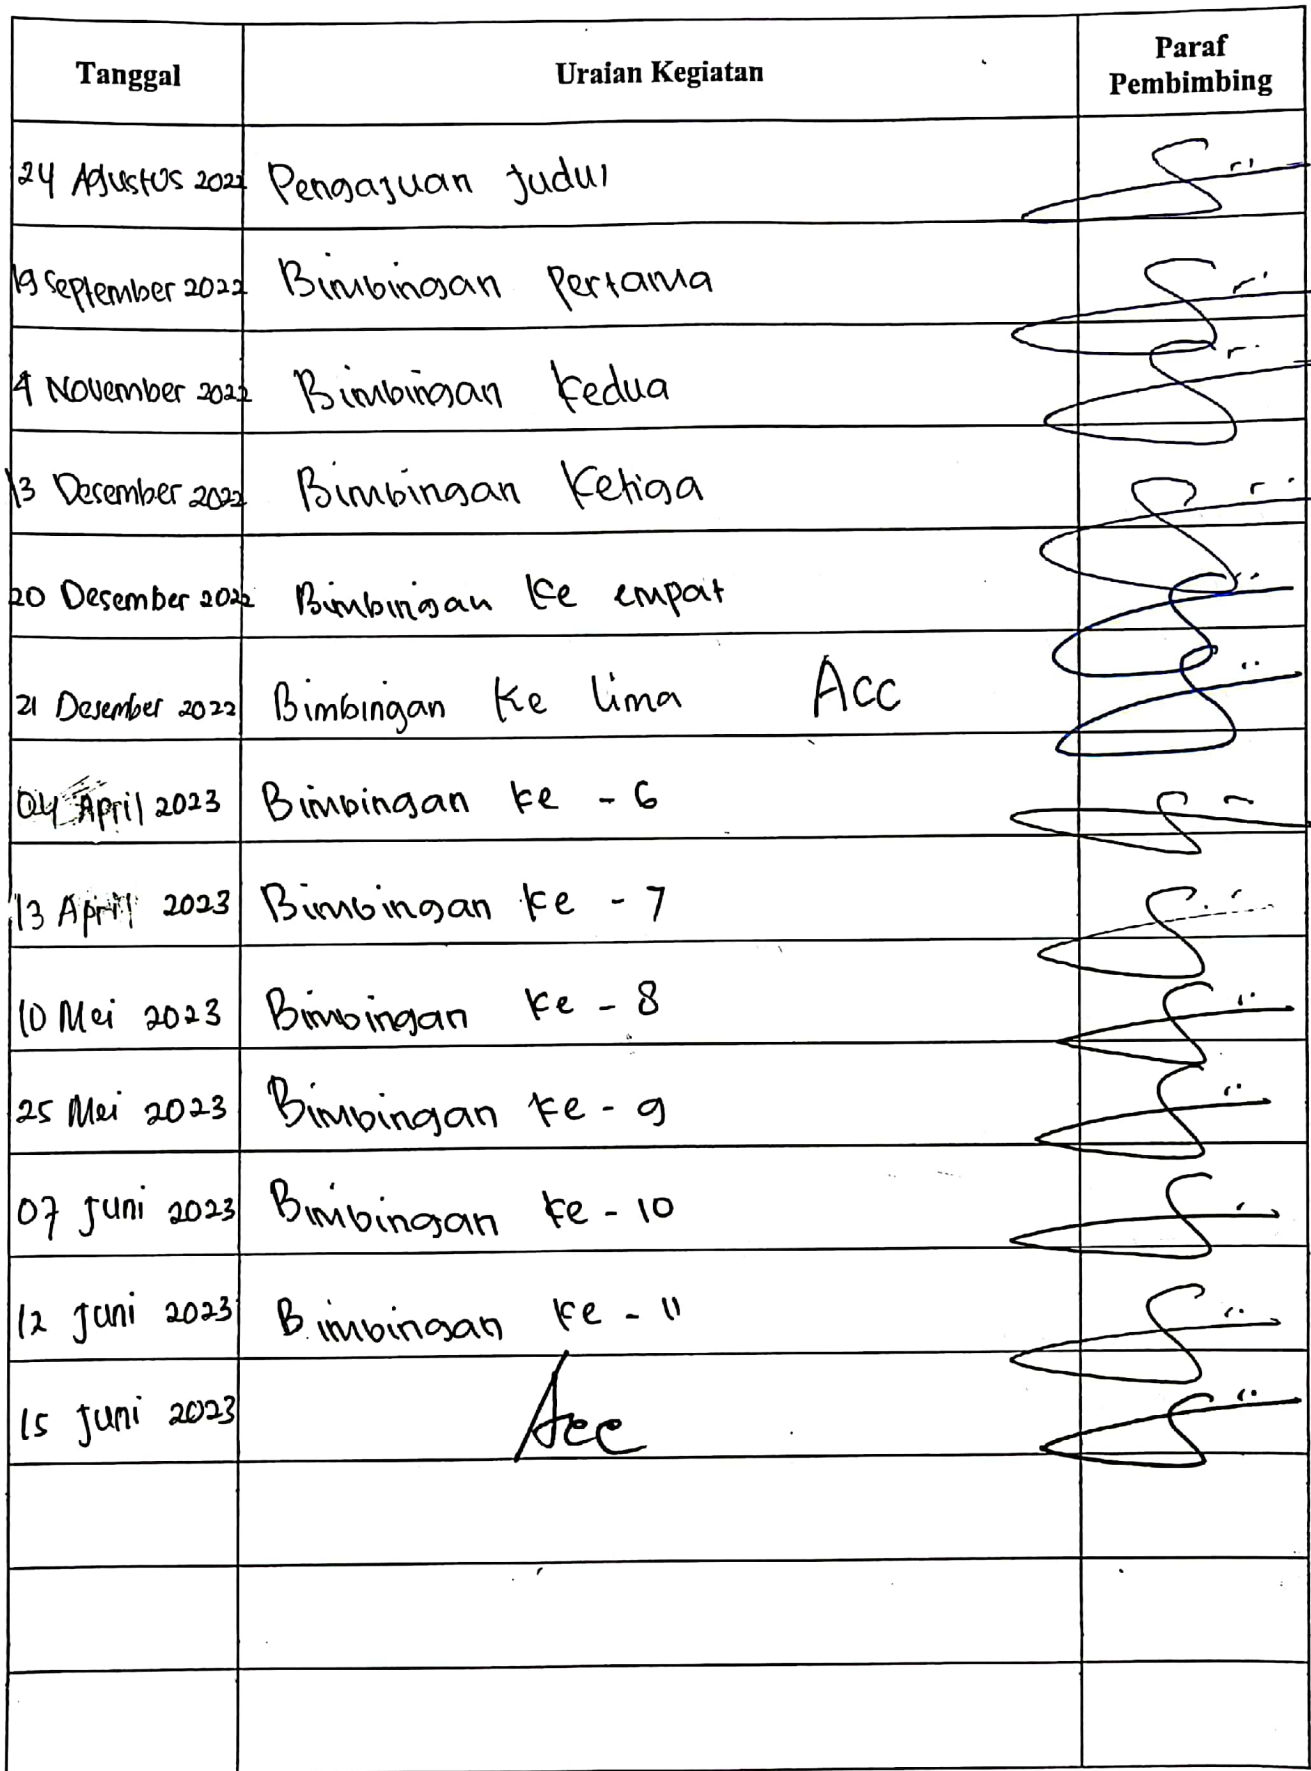 Tanggal Uraian Kegiatan Paraf Pembimbing
24 Agustus 2022 Pengajuan Judul
19 September 2022 Bimbingan Pertama
4 November 2022 Bimbingan Kedua
13 Desember 2022 Bimbingan Ketiga
20 Desember 2022 Bimbingan ke empat
21 Desember 2022 Bimbingan ke lima Acc
04 April 2023 Bimbingan ke - 6
13 April 2023 Bimbingan ke - 7
10 Mei 2023 Bimbingan ke - 8
25 Mei 2023 Bimbingan ke - 9
07 Juni 2023 Bimbingan ke - 10
12 Juni 2023 Bimbingan ke - 11
15 Juni 2023 Acc